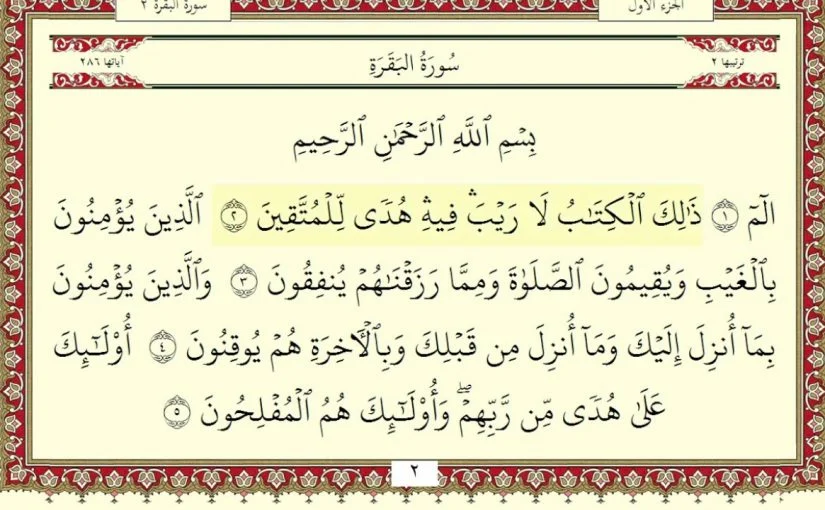 الجزء الأول
سورة البقرة ٢
ترتيبها ٢
سُورَةُ البَقَرَةِ
آياتها ٢٨٦
بِسْمِ ٱللَّهِ ٱلرَّحْمَٰنِ ٱلرَّحِيمِ
الٓمٓ ١ ذَٰلِكَ ٱلْكِتَٰبُ لَا رَيْبَۛ فِيهِۛ هُدًى لِّلْمُتَّقِينَ ٢ ٱلَّذِينَ يُؤْمِنُونَ
بِٱلْغَيْبِ وَيُقِيمُونَ ٱلصَّلَوٰةَ وَمِمَّا رَزَقْنَٰهُمْ يُنفِقُونَ ٣ وَٱلَّذِينَ يُؤْمِنُونَ
بِمَآ أُنزِلَ إِلَيْكَ وَمَآ أُنزِلَ مِن قَبْلِكَ وَبِٱلْءَاخِرَةِ هُمْ يُوقِنُونَ ٤ أُو۟لَٰٓئِكَ
عَلَىٰ هُدًى مِّن رَّبِّهِمْۖ وَأُو۟لَٰٓئِكَ هُمُ ٱلْمُفْلِحُونَ ٥
٢